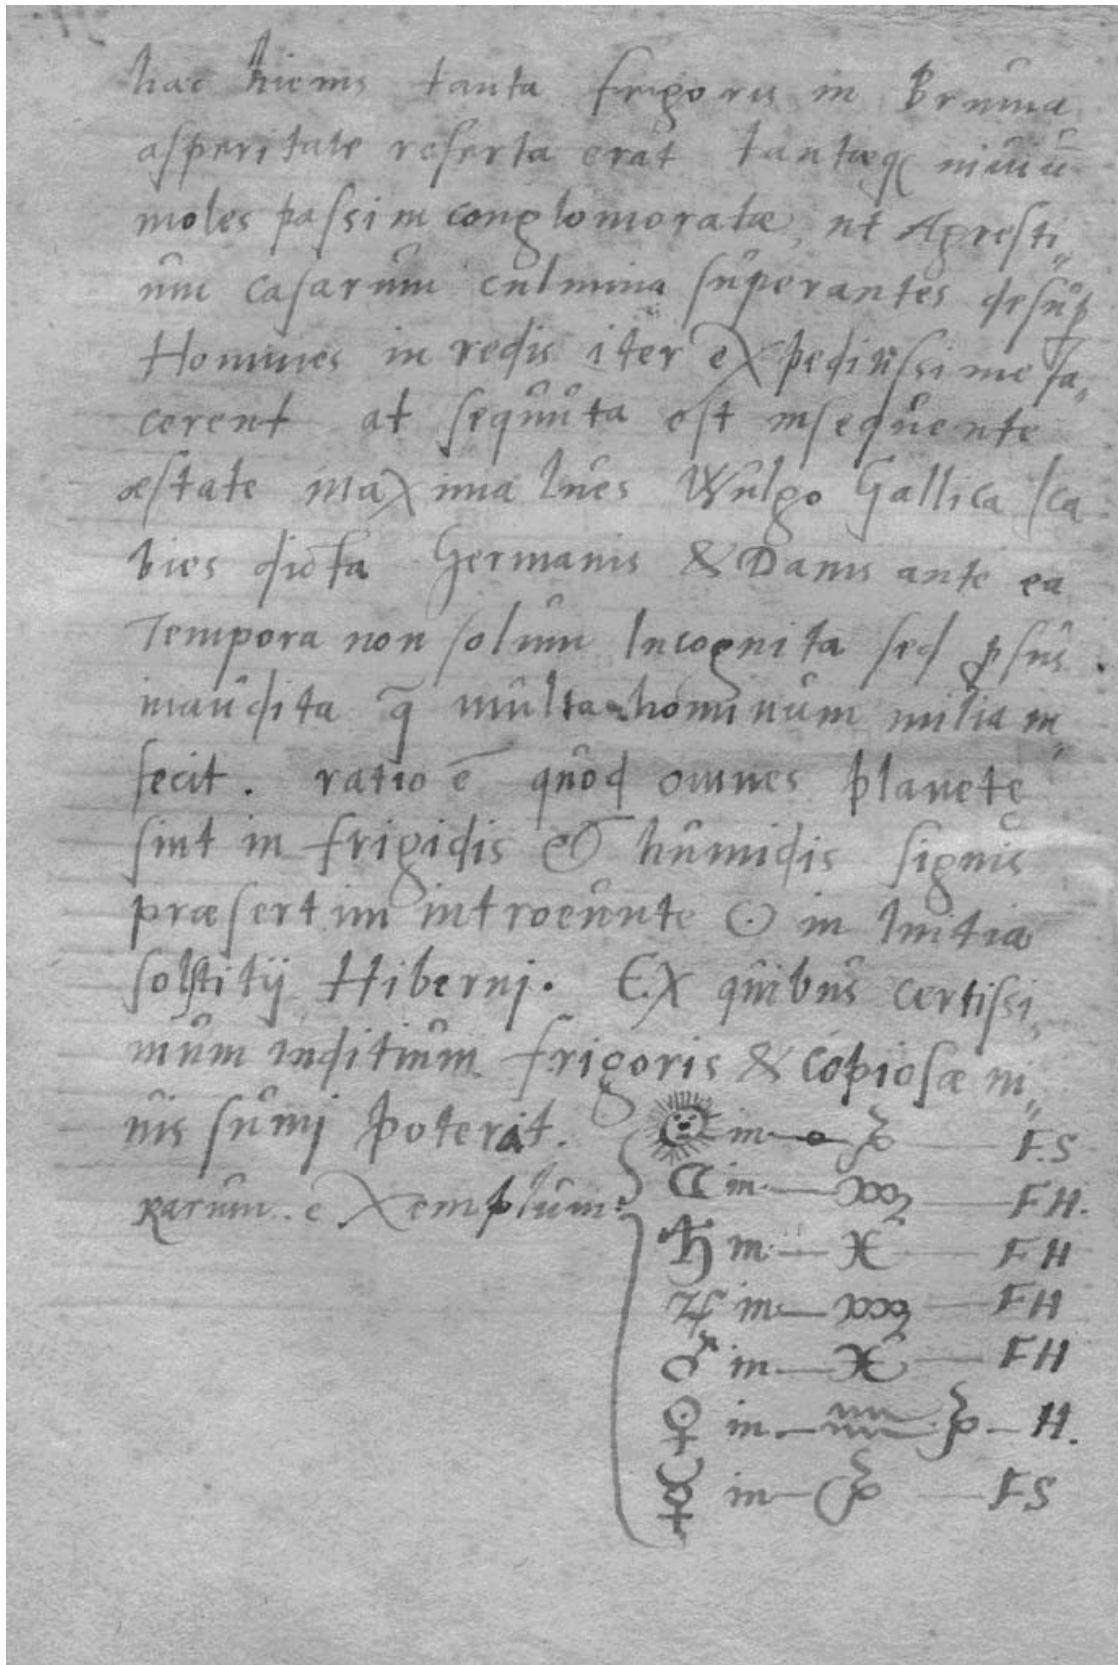 hac hiems tanta frigoris in Bruma
asperitate referta erat tantæq; niuiū
moles passim conglomoratæ, ut Agresti„
um casarum culmina superantes desup̱
Homines in redis iter expeditissime fa„
cerent at sequuta est insequente
æstate maxima lues Wulgo Gallica sca
bies dicta Germanis & Danis ante ea
Tempora non solum Incognita sed ꝓsus
inaudita q̄ multa hominum milia in„
fecit. ratio ē quod omnes planetę
sint in frigidis et humidis signis
præsertim introeunte ☉ in Initia
solstitij Hibernj. Ex quibus certissi„
mum inditium frigoris & copiosæ ni„
uis sumj poterit.
☉ in — ♑ — F.S
rarum exemplum:
☾ in — ♏ — FH.
♄ in — ♓ — FH
♃ in — ♏ — FH
♂ in — ♓ — FH
♀ in — ♒ ♑ — H.
☿ in — ♑ — FS